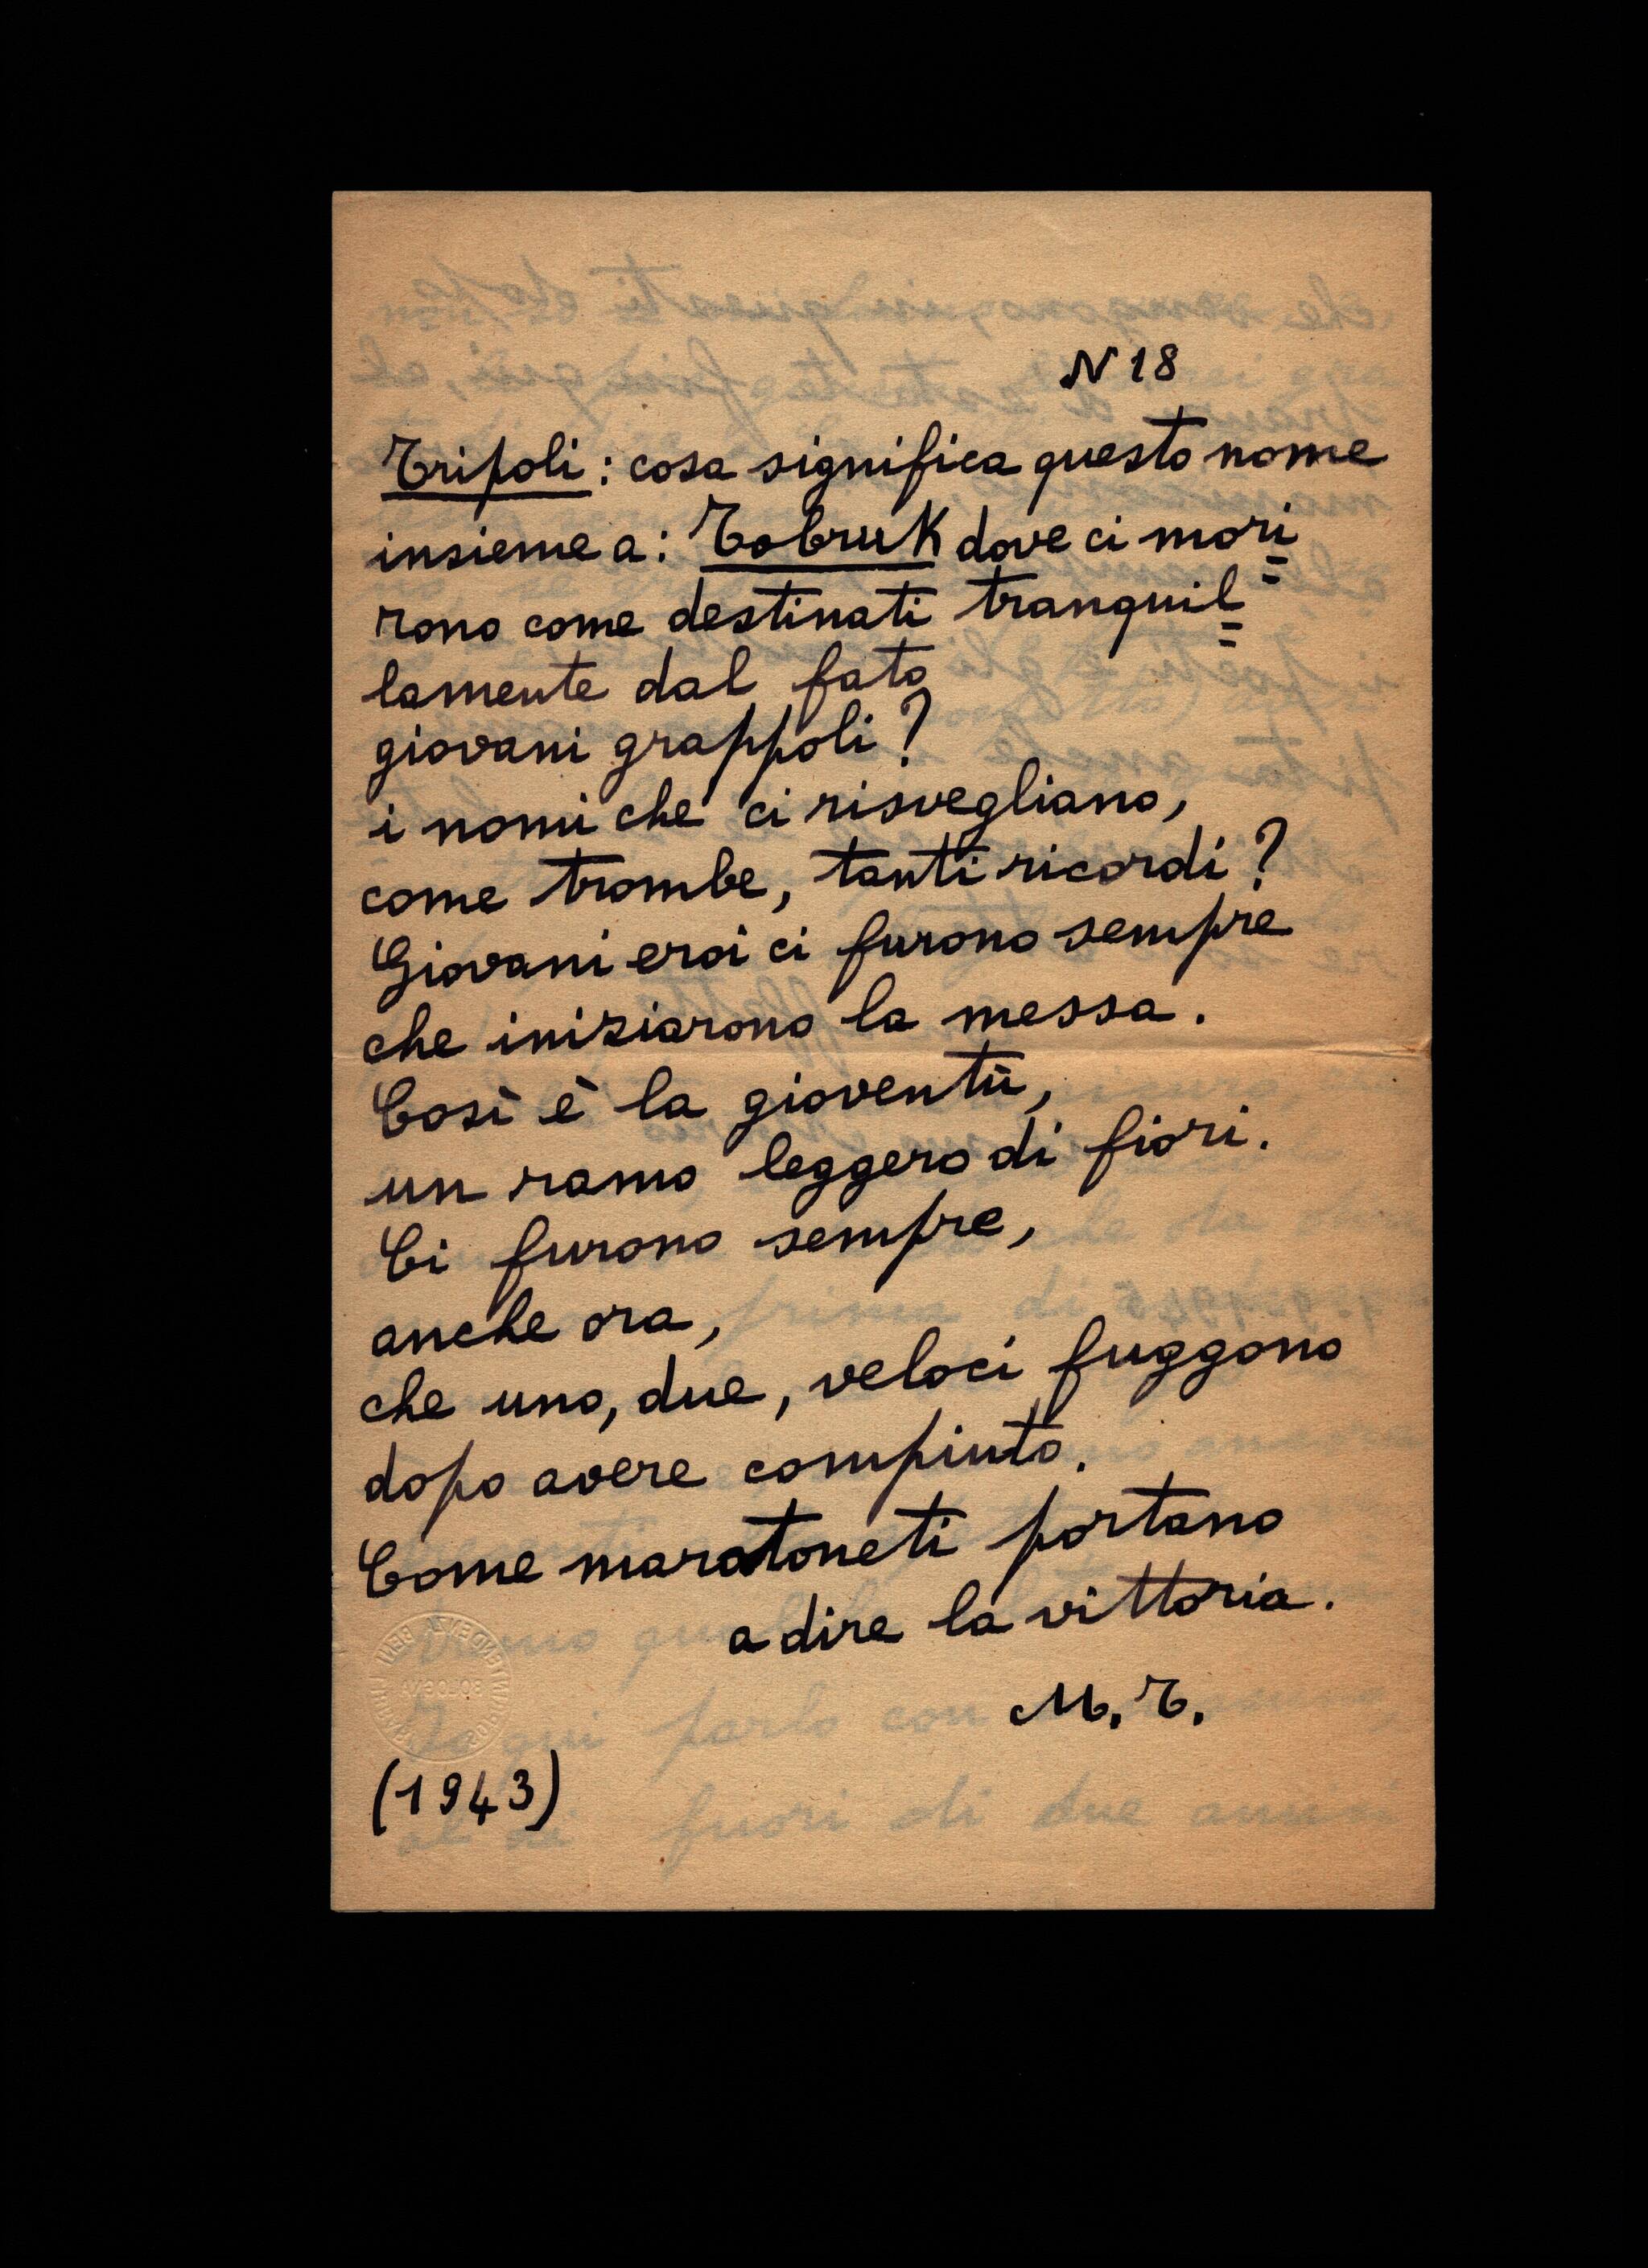 N 18
Tripoli: cosa significa questo nome
insieme a: Tobruk dove ci mori=
rono come destinati tranquil=
lamente dal fato
giovani grappoli?
i nomi che ci risvegliano,
come trombe, tanti ricordi?
Giovani eroi ci furono sempre
che iniziarono la messa.
Così è la gioventù,
un ramo leggero di fiori.
Ci furono sempre,
anche ora,
che uno, due, veloci fuggono
dopo avere compiuto.
Come maratoneti portano
a dire la vittoria.
M. T.
(1943)